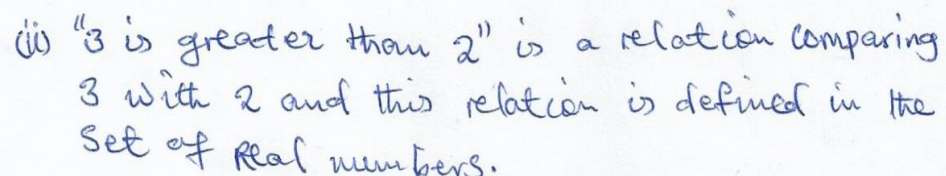 (ii) "3 is greater than 2" is a relation comparing
3 with 2 and this relation is defined in the
Set of Real numbers.